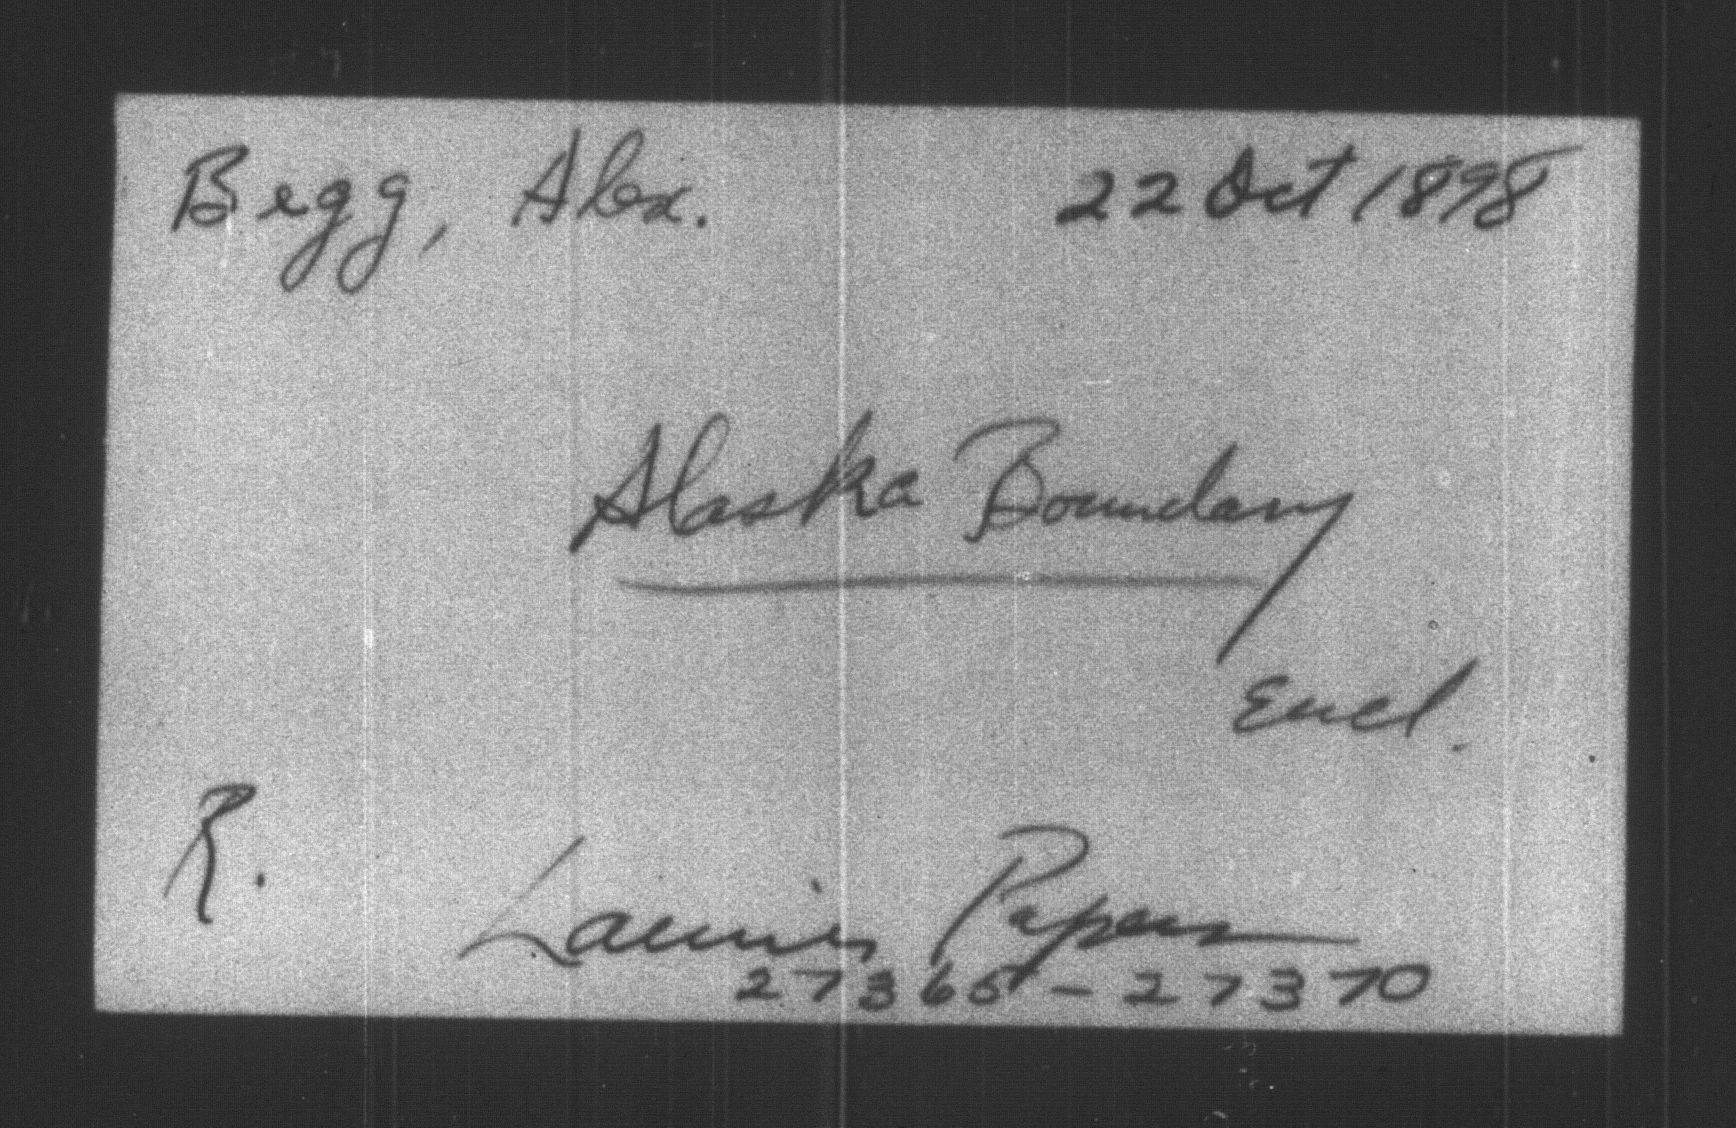 Begg, Alex. 22 Oct 1898
Alaska Boundary
Encl.
R.
Laurier Papers
27365-27370